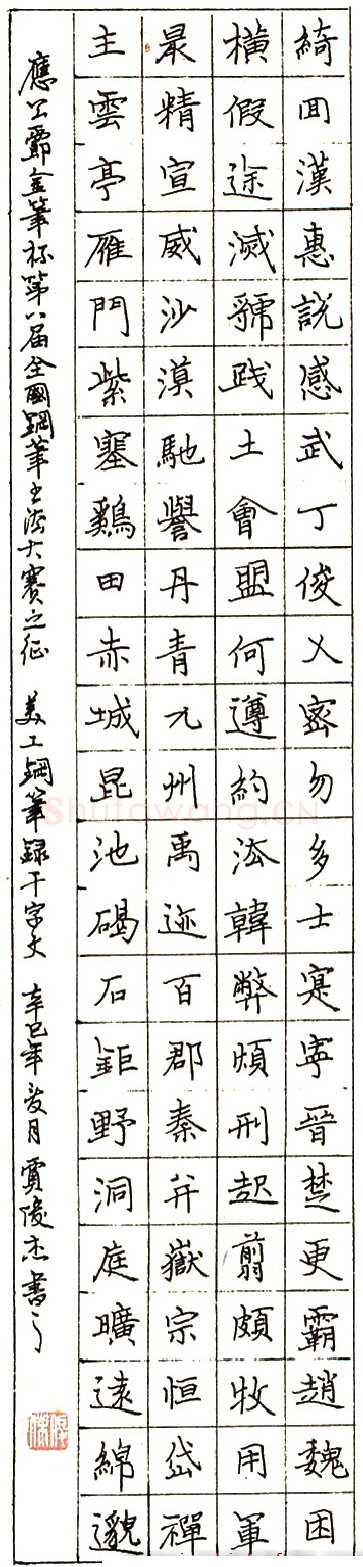 綺回漢惠說感武丁俊乂密勿多士寔寧晉楚更霸趙魏困
橫假途滅虢践土會盟何遵約法韓弊煩刑起翦頗牧用軍
最精宣威沙漠馳譽丹青九州禹迹百郡秦并嶽宗恒岱禪
主雲亭雁門紫塞鷄田赤城昆池碣石鉅野洞庭曠遠綿邈
應金筆杯第八届全國鋼筆书法大賽之征 美工鋼筆録千字文 辛巳年月賈俊杰書之
Shufawang.CN